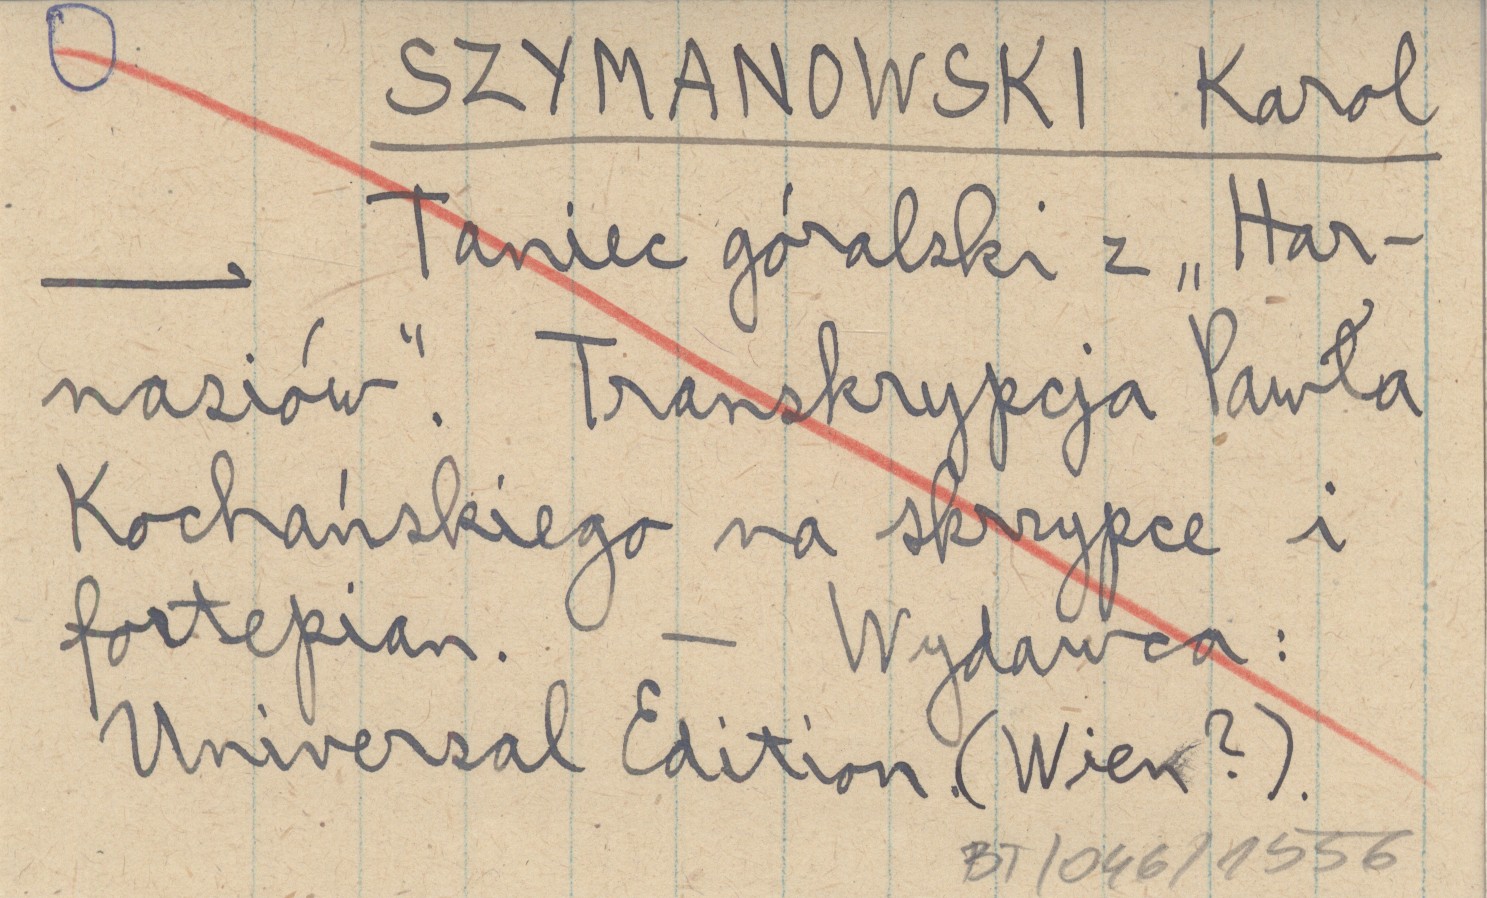 SZYMANOWSKI Karol
Taniec góralski z „Har-
nasiów". Transkrypcja Pawła
Kochańskiego na skrzypce i
fortepian. — Wydawca:
Universal Edition.(Wien?).
BT/046/1556